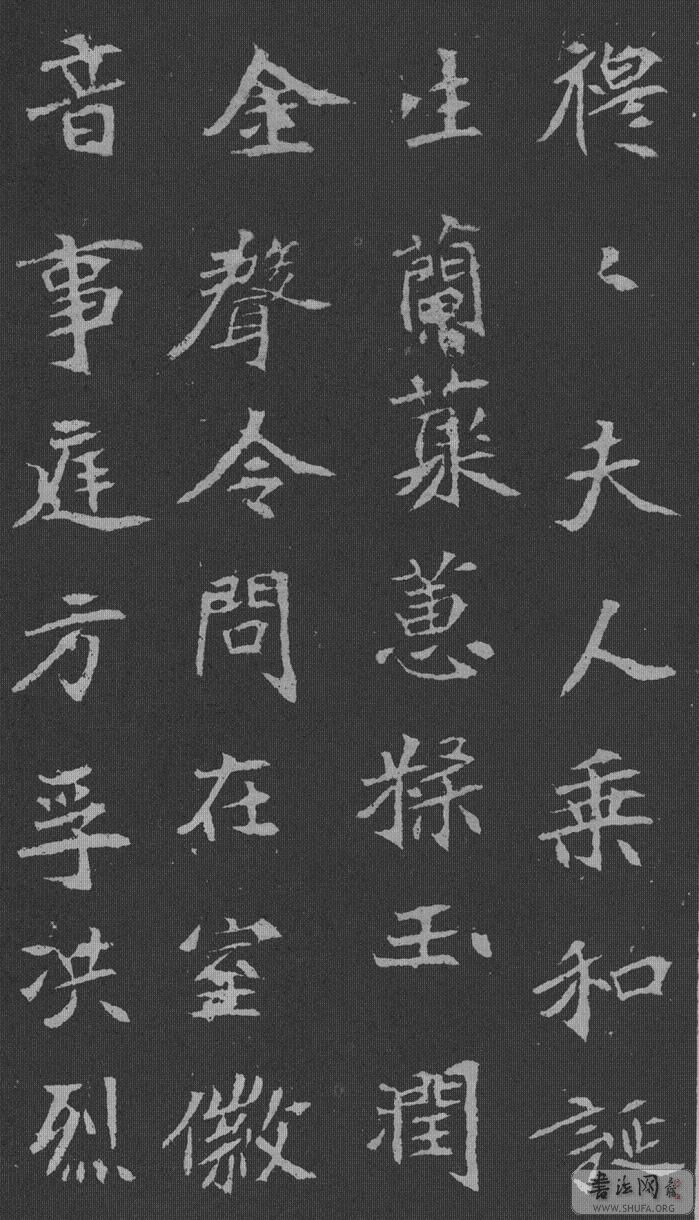 穆〻夫人乘和誕
生蘭蕙糅玉潤
金聲令問在室徽
音事庭方孚洪烈
書法网
WWW.SHUFA.ORG